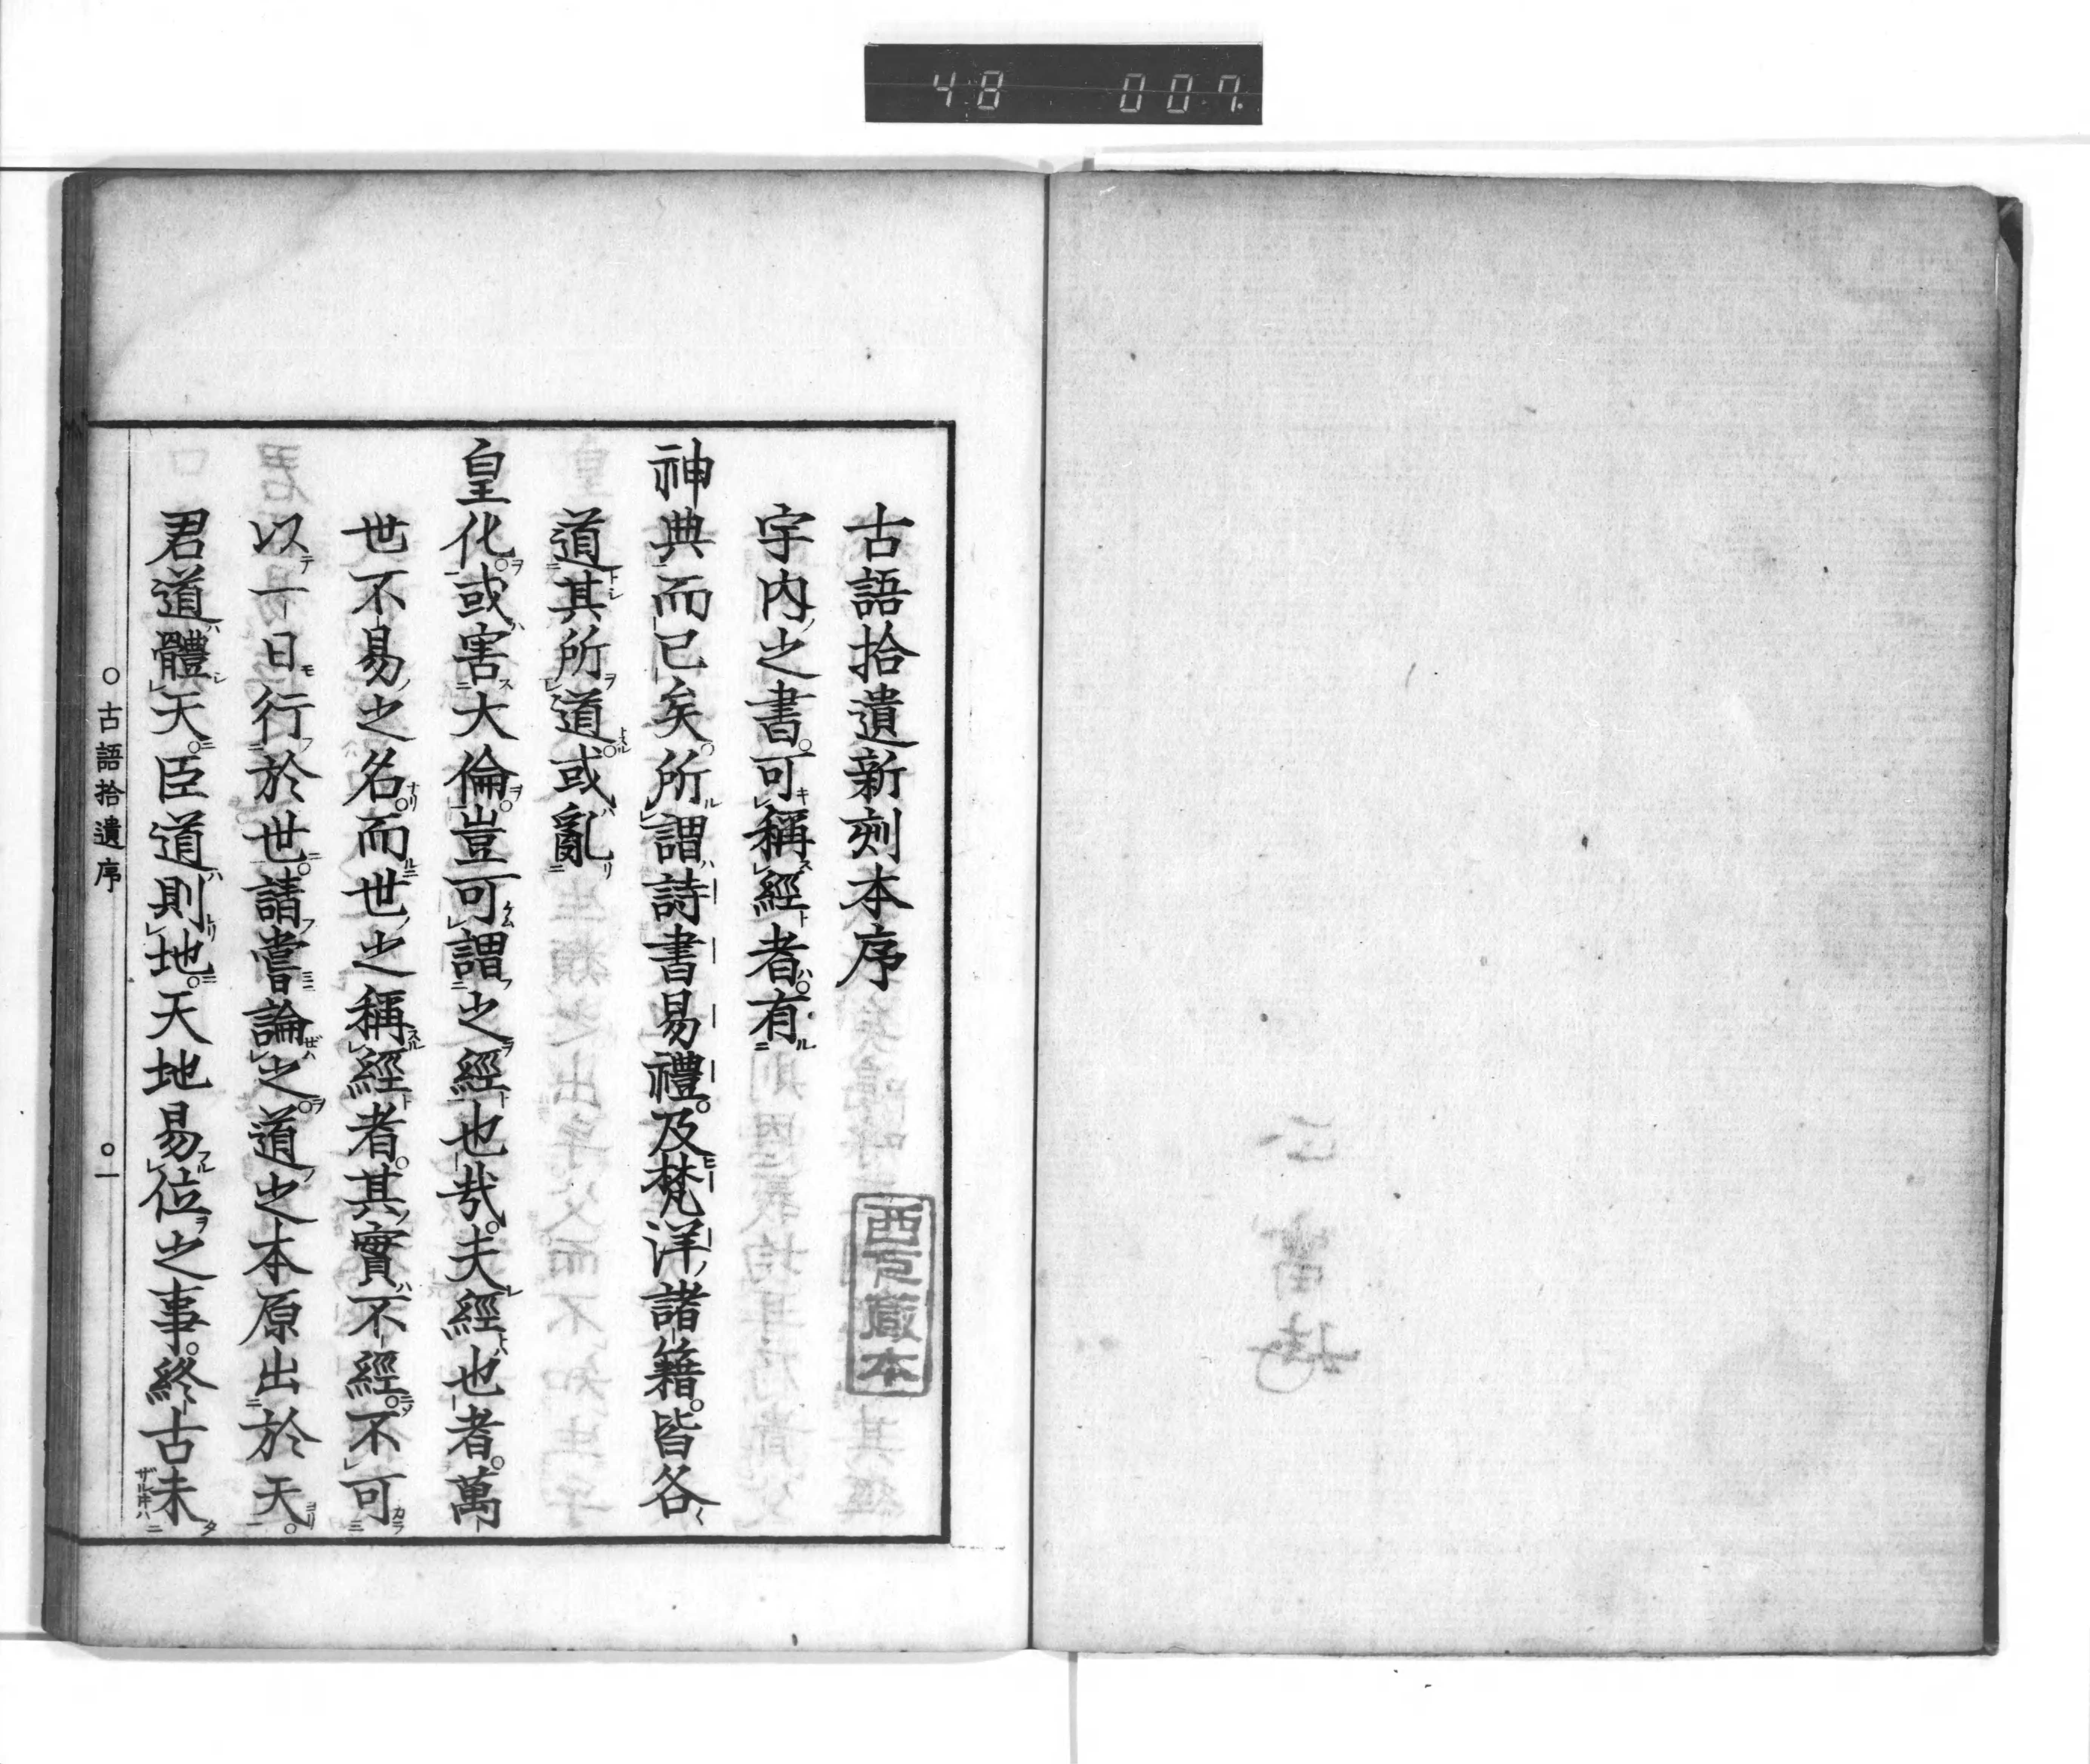 48 007
古語拾遺新刻本序
宇内之書可稱經者有
神典而已矣所謂詩書易禮及梵洋諸籍皆各
道其所道或亂
皇化或害大倫豈可謂之經也哉夫經也者萬
世不易之名而世之稱經者其實不經不可
以一日行於世請嘗論之道之本原出於天
君道體天臣道則地天地易位之事終古未
古語拾遺序
一